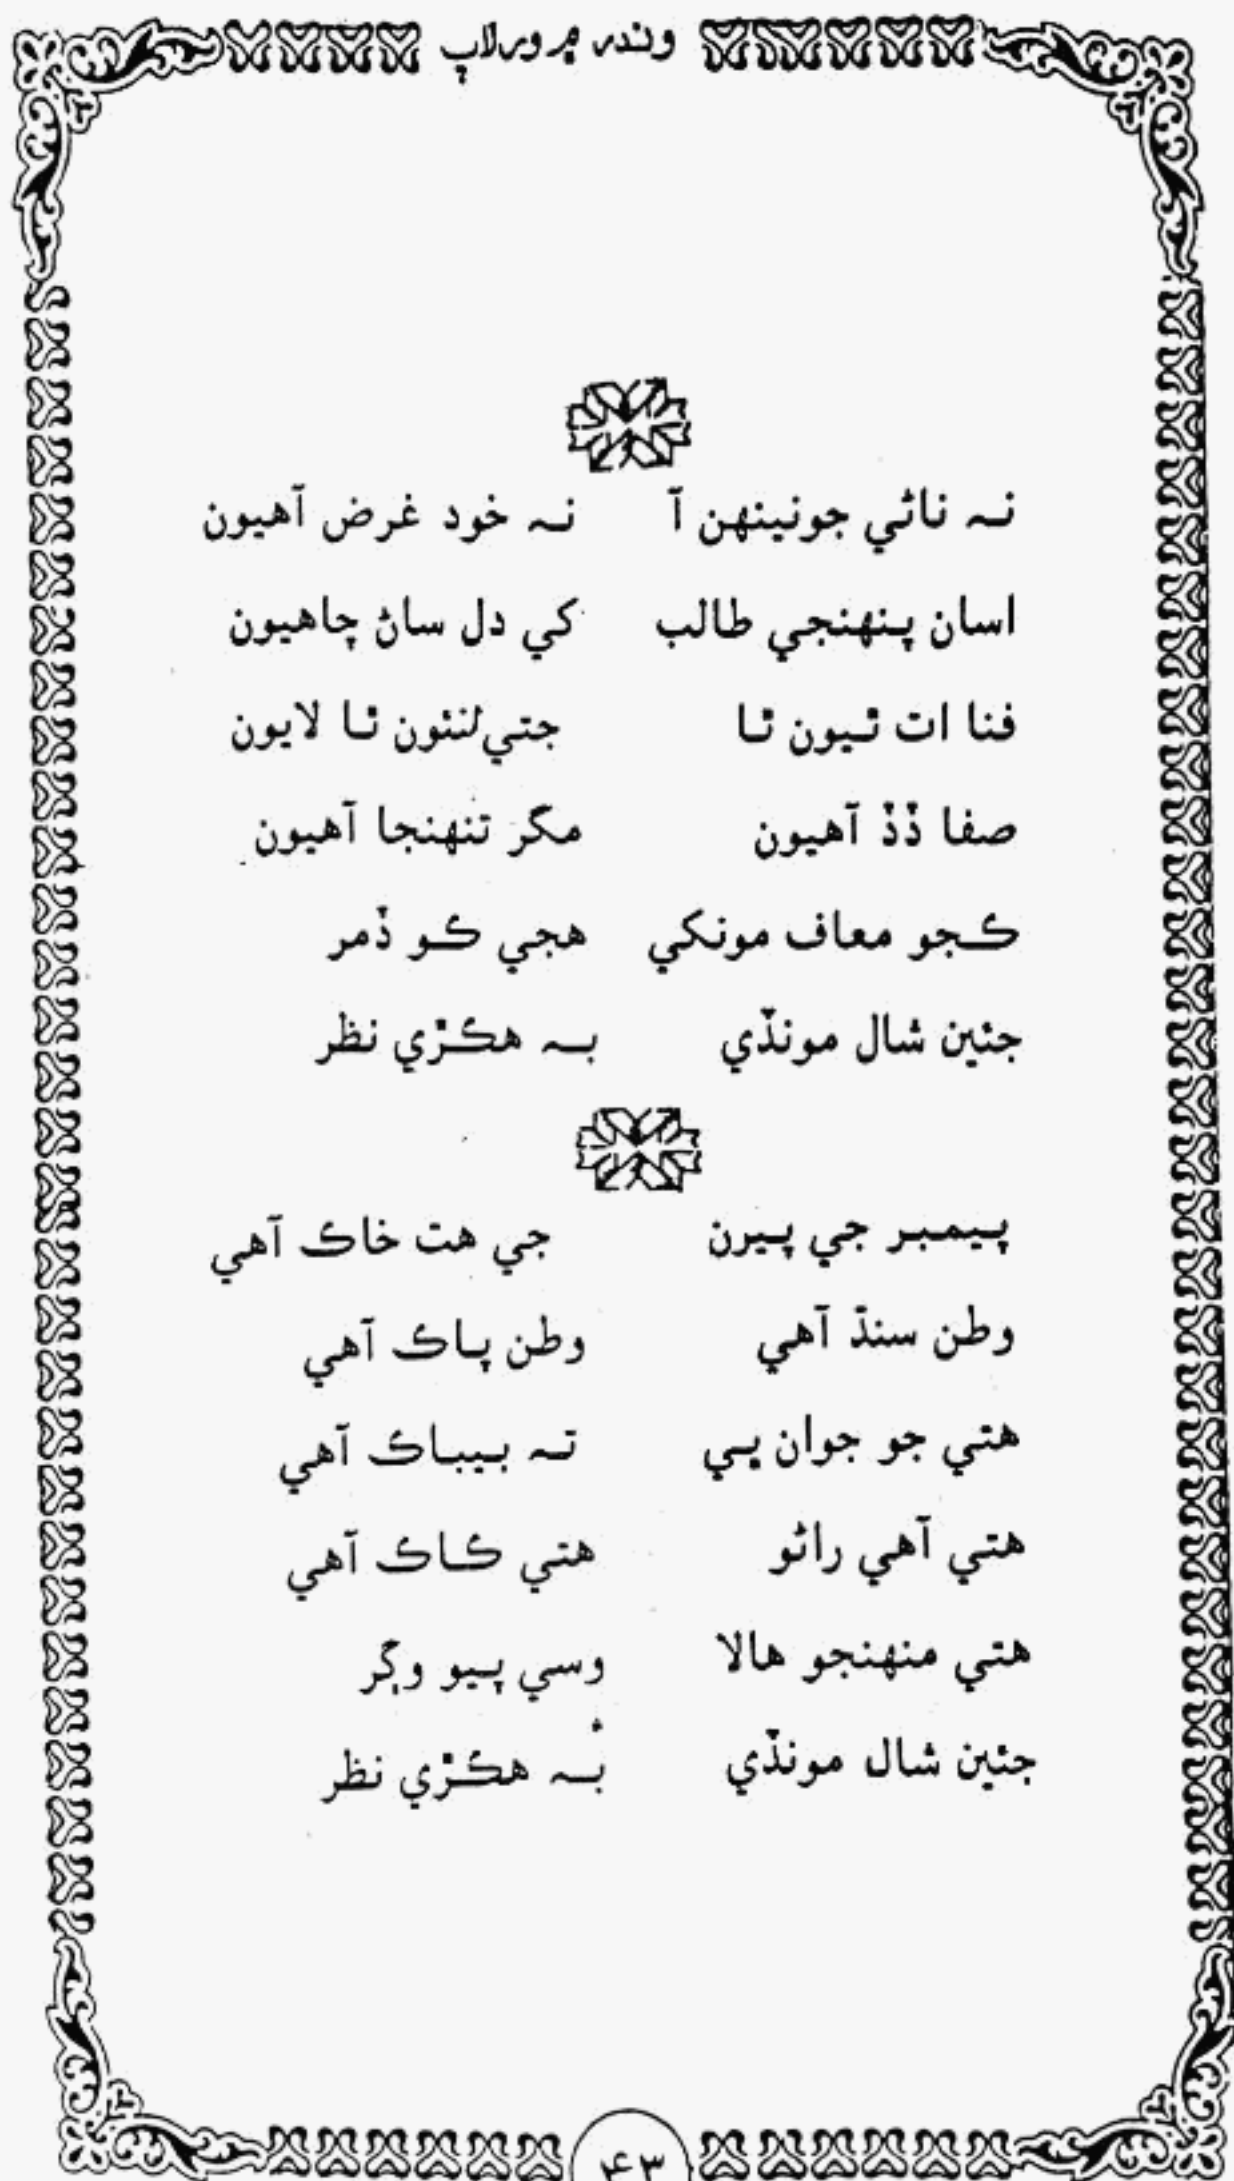 وندر ۾ ورلاپ
نہ ناٿي جونينهن آ نہ خود غرض آهيون
اسان پنهنجي طالب کي دل ساڻ چاهيون
فنا ات ٿيون ٿا جتي لنئون ٿا لايون
صفا ڏڏ آهيون مگر تنهنجا آهيون
ڪجو معاف مونکي هجي ڪو ڏمر
جئين شال مونڏي بہ هڪڙي نظر
پيمبر جي پيرن جي هت خاڪ آهي
وطن سنڌ آهي وطن پاڪ آهي
هتي جو جوان پي تہ بيباڪ آهي
هتي آهي راڻو هتي ڪاڪ آهي
هتي منهنجو هالا وسي پيو وڳر
جئين شال مونڏي بُہ هڪڙي نظر
۴۳